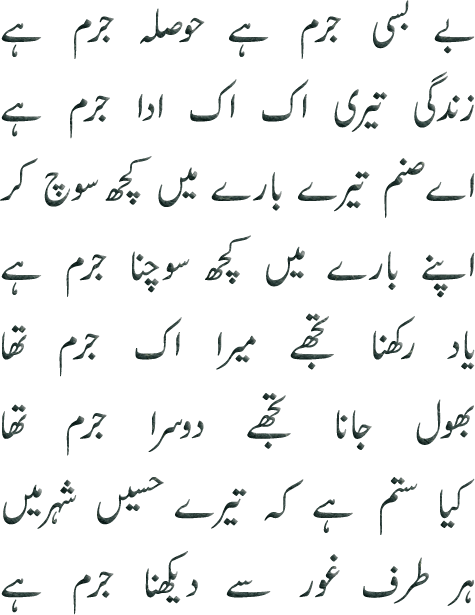 بے بسی جرم ہے حوصلہ جرم ہے
زندگی تیری اک اک ادا جرم ہے
اے صنم تیرے بارے میں کچھ سوچ کر
اپنے بارے میں کچھ سوچنا جرم ہے
یاد رکھنا تجھے میرا اک جرم تھا
بھول جانا تجھے دوسرا جرم تھا
کیا ستم ہے کہ تیرے حسیں شہر میں
ہر طرف غور سے دیکھنا جرم ہے